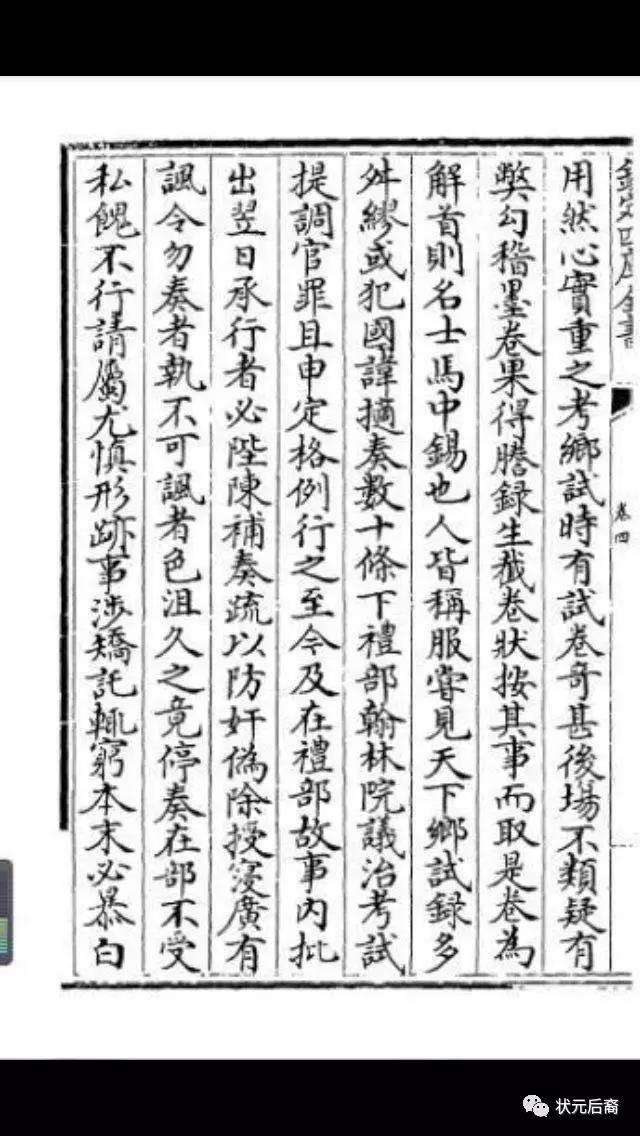 欽定四庫全書
卷四
用然心實重之考鄉試時有試卷奇甚後場不類疑有
弊勾稽墨卷果得謄録生截卷狀按其事而取是卷為
解首則名士馬中錫也人皆稱服嘗見天下鄉試録多
舛繆或犯國諱摘奏數十條下禮部翰林院議治考試
提調官罪且申定格例行之至今及在禮部故事内批
出翌日承行者必陛陳補奏疏以防奸偽除授寖廣有
諷令勿奏者執不可諷者色沮久之竟停奏在部不受
私餽不行請屬尤慎形跡事涉矯託輒窮本末必暴白
状元后裔